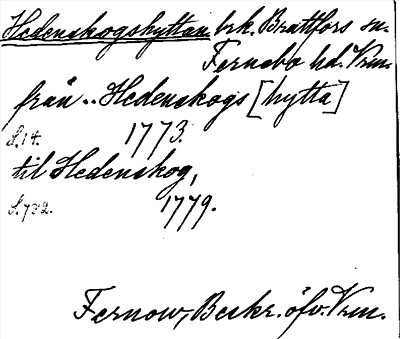 Hedenskogshyttan brk. Brattfors sn.
Fernebo hd. Vrm.
från .. Hedenskogs [hytta]
S. 14. 1773.
til Hedenskog,
S. 732. 1779.
Fernow, Beskr. öfv. Vrm.